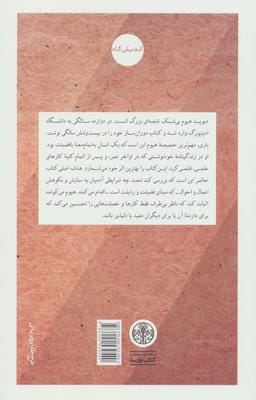 اندیشگاه
دیوید هیوم بی‌شک نابغه‌ای بزرگ است. در دوازده سالگی به دانشگاه
ادینبورگ وارد شد و کتاب دوران‌ساز خود را در بیست‌وشش سالگی نوشت.
باری، مهم‌ترین خصیصهٔ هیوم این است که یک انسان به‌تمام‌معنا بافضیلت بود.
او در زندگینامهٔ خودنوشتی که در اواخر عمر، و پس از اتمام کلیهٔ کارهای
علمی، قلمی کرد، این کتاب را بهترین اثر خود می‌شمارد. هدف اصلی کتاب
حاضر این است که بررسی کند تحت چه شرایطی آدمیان به ستایش و نکوهش
اعمال و احوال ـ که مبنای فضیلت و رذیلت است ـ اقدام می‌کنند. هیوم می‌کوشد
اثبات کند که ناظر بی‌طرف فقط کارها و خصلت‌هایی را تحسین می‌کند که
برای دارندهٔ آن یا برای دیگران مفید یا دلپذیر باشد.
کتاب پارسه